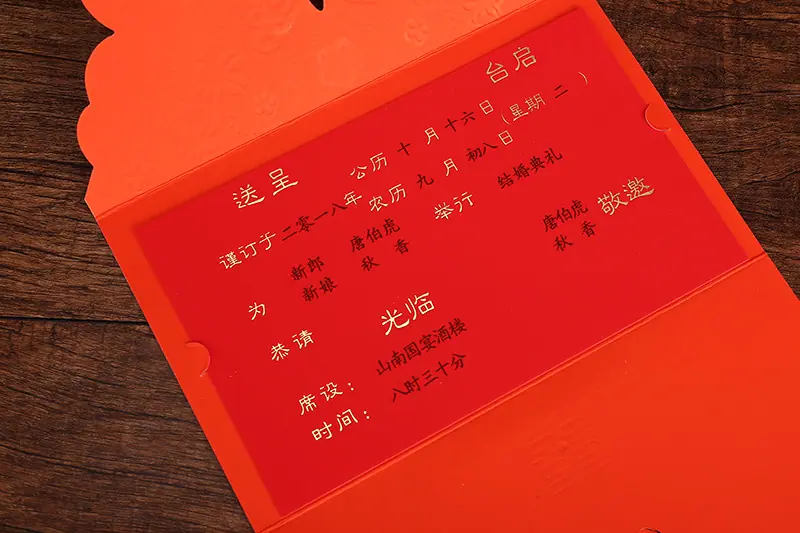 送呈 台启
谨订于二零一八年 公历 十 月 十六 日 (星期 二 )
农历 九 月 初八 日
为 新郎 唐伯虎 举行 结婚典礼
新娘 秋 香
恭请 光临 唐伯虎 敬邀
秋 香
席设: 山南国宴酒楼
时间: 八时三十分